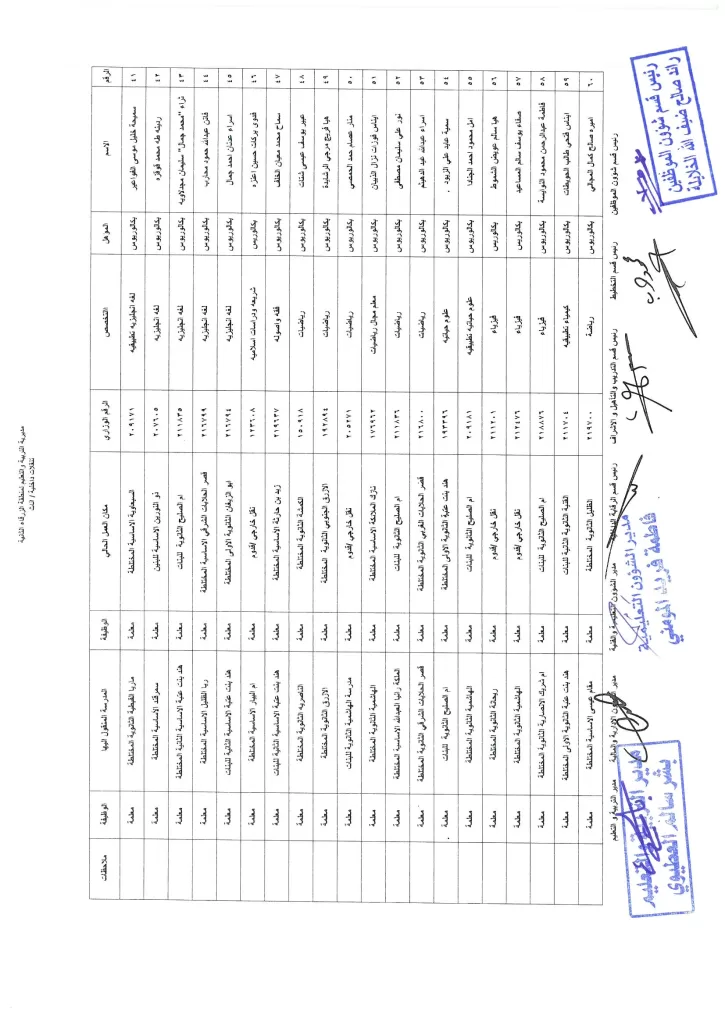 مديرية التربية والتعليم لمنطقة الزرقاء الثانية
تنقلات داخلية / اناث
الرقم الاسم المؤهل التخصص الرقم الوزاري مكان العمل الحالي الوظيفة المدرسة المنقول اليها الوظيفة ملاحظات
٤١ سميحة خليل موسى الفواعير بكالوريوس لغه انجليزيه تطبيقيه ٢٠٩١٧١ السمعاورية الاساسية المختلطة معلمة ماريا القبطية الثانوية المختلطة معلمة
٤٢ رديته طه محمد قوقزه بكالوريوس لغه انجليزيه ٢٠٧٦٠٥ ذو النورين الاساسية للبنين معلمة سمرقند الأساسية المختلطة معلمة
٤٣ ثراء "محمد جمال" سليمان مجدلاويه بكالوريوس لغه انجليزيه ٢١١٨٣٥ ام الصليح الثانوية للبنات معلمة هند بنت عتبة الاساسية الثانية المختلطة معلمة
٤٤ فاتن عبدالله حمود محارب بكالوريوس لغه انجليزيه ٢١٦٧٩٩ قصر الحلابات الشرقي الاساسية المختلطة معلمة ريا الظليل الاساسية المختلطة معلمة
٤٥ اسراء عدنان احمد جمال بكالوريوس لغه انجليزيه ٢١٦٧٩٤ ابو الزيغان الثانوية الاولى المختلطة معلمة هند بنت عتبة الاساسية الثانية للبنات معلمة
٤٦ فدوى بركات حسين اعتزه بكالوريس شريعه ودراسات اسلاميه ١٢٣٦٠٨ نقل خارجي/قدوم معلمة ام البيار الاساسية المختلطة معلمة
٤٧ سماح محمد معيان الخلف بكالوريوس فقه واصوله ٢١٩٦٣٧ زيد بن حارثة الاساسية المختلطة معلمة هند بنت عتبة الاساسية الثانية للبنات معلمة
٤٨ عبير يوسف عيسى شتات بكالوريوس رياضيات ١٥٠٩١٨ الكمشة الثانوية المختلطة معلمة الناصريه الثانوية المختلطة معلمة
٤٩ هيا فريج مرجي الرشايدة بكالوريوس رياضيات ١٩٢٨٩٤ الازرق الجنوبي الثانوية المختلطة معلمة الازرق الثانوية المختلطة معلمة
٥٠ منار عصام حمد الحمصي بكالوريوس رياضيات ٢٠٥٢٧١ نقل خارجي/قدوم معلمة مدرسة الهاشمية الثانوية للبنات معلمة
٥١ ايناس فوزات نزال الذيبان بكالوريوس معلم مجال رياضيات ١٧٦٩٦٢ نازك الملائكة الاساسية المختلطة معلمة الهاشمية الثانوية للبنات معلمة
٥٢ نور علي سليمان مصطفى بكالوريوس رياضيات ٢١١٨٣٦ ام الصليح الثانوية للبنات معلمة الملكة رانيا العبدالله الاساسية المختلطة معلمة
٥٣ اسراء عبدالله عبد الدهيثم بكالوريوس رياضيات ٢١٦٨٠٠ قصر الحلابات الغربي الثانوية المختلطة معلمة قصر الحلابات الشرقي الثانوية المختلطة معلمة
٥٤ سمية عايد علي الزيود بكالوريوس علوم حياتيه ١٩٣٣٩٦ هند بنت عتبة الثانوية الاولى المختلطة معلمة ام الصليح الثانوية للبنات معلمة
٥٥ امل محمود احمد الجندا بكالوريوس علوم حياتيه تطبيقيه ٢٠٩١٨١ ام الصليح الثانوية للبنات معلمة الهاشمية الثانوية للبنات معلمة
٥٦ هيا سالم عويض الشموط بكالوريس فيزياء ٢١١٢٠١ نقل خارجي/قدوم معلمة ريحانة الثانوية للبنات معلمة
٥٧ صفاء يوسف سالم المساعيد بكالوريس فيزياء ٢١٢٤٧٦ نقل خارجي/قدوم معلمة الهاشمية الثانوية للبنات معلمة
٥٨ فاطمة عبدالرحمن محمود النوايسة بكالوريوس فيزياء ٢١٨٨٧٦ ام الصليح الثانوية للبنات معلمة ام شريك الانصارية الثانوية المختلطة معلمة
٥٩ ايناس فتحي طالب الحويطات بكالوريوس كيمياء تطبيقيه ٢١١٧٠٤ القنية الثانوية الثانية للبنات معلمة هند بنت عتبة الثانوية الاولى المختلطة معلمة
٦٠ اميره صالح كمال المجالي بكالوريوس رياضة ٢١٩٧٠٠ الظليل الثانوية المختلطة معلمة مقام عيسى الاساسية المختلطة معلمة
رئيس قسم شؤون الموظفين رئيس قسم التخطيط رئيس قسم التدريب والتأهيل و الاشراف رئيس قسم الرقابة الداخلية مدير الشؤون التعليمية والفنية مدير الشؤون الادارية و المالية مدير التربية و التعليم
رئيس قسم شؤون الموظفين
رائد صالح ضيف الله الخلايلة
مدير الشؤون التعليمية
فاطمة فريد المومني
مدير التربية والتعليم